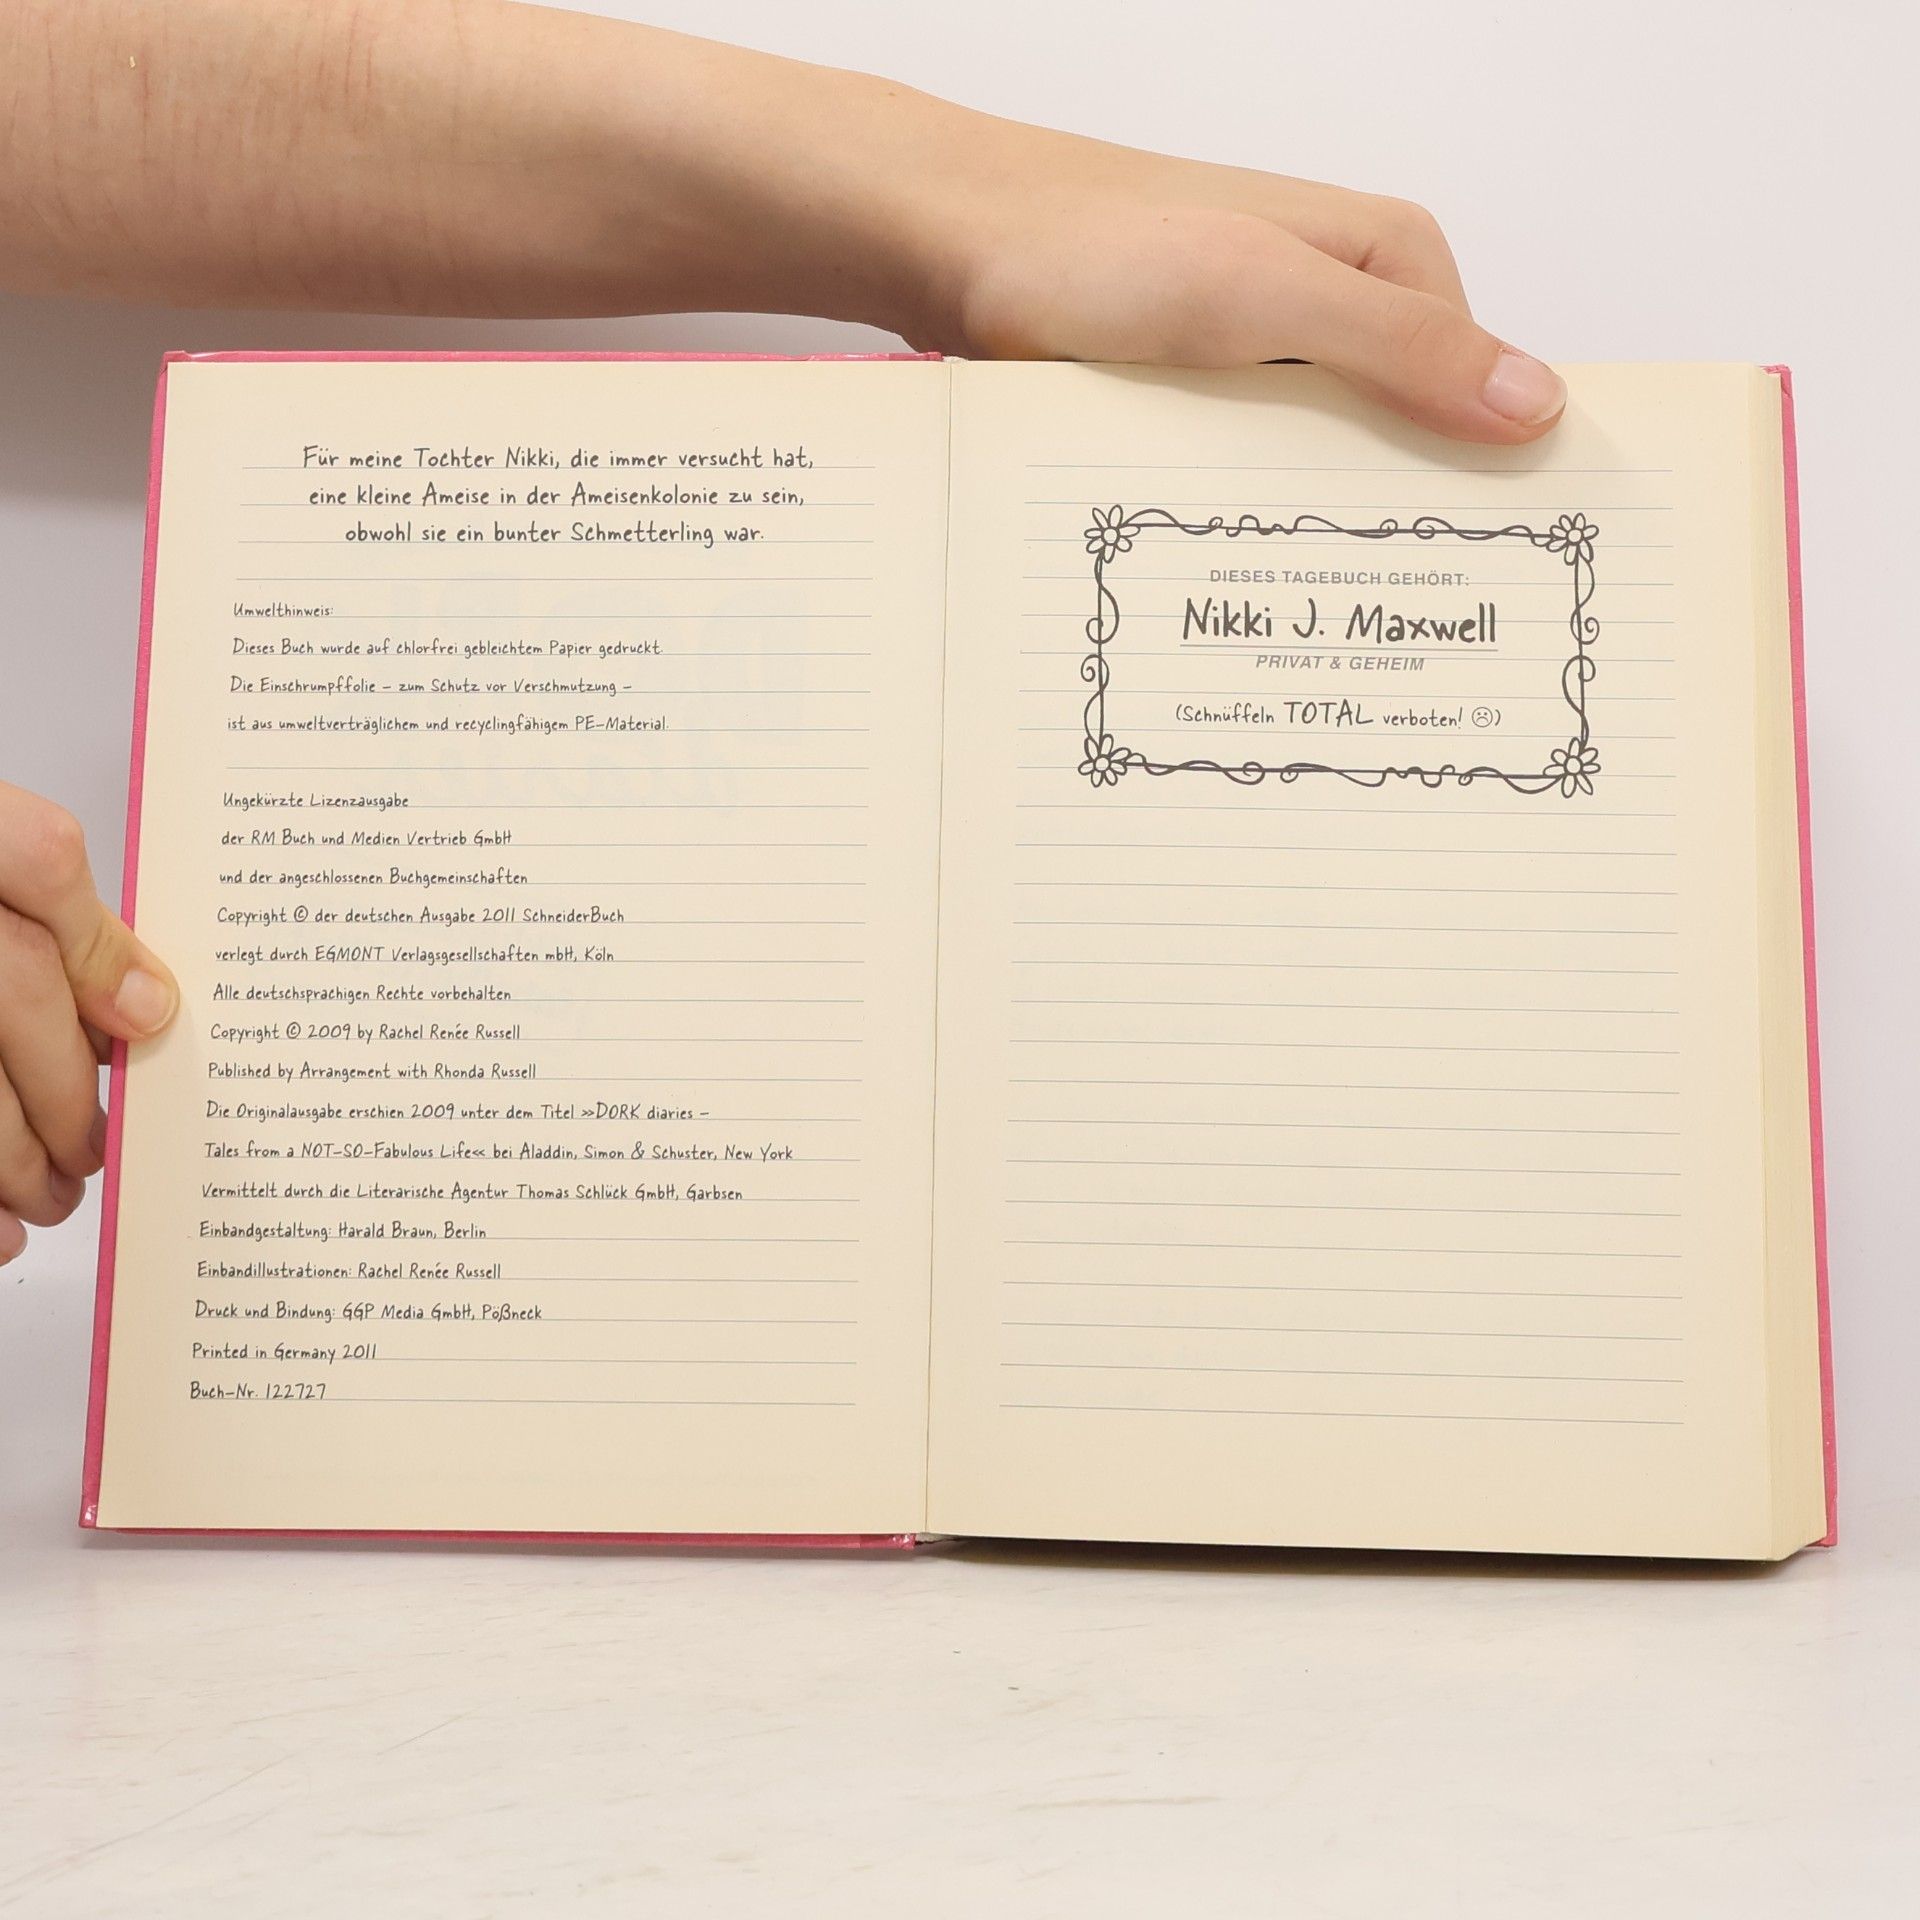 Für meine Tochter Nikki, die immer versucht hat,
eine kleine Ameise in der Ameisenkolonie zu sein,
obwohl sie ein bunter Schmetterling war.
Umwelthinweis:
Dieses Buch wurde auf chlorfrei gebleichtem Papier gedruckt.
Die Einschrumpffolie – zum Schutz vor Verschmutzung –
ist aus umweltverträglichem und recyclingfähigem PE-Material.
Ungekürzte Lizenzausgabe
der RM Buch und Medien Vertrieb GmbH
und der angeschlossenen Buchgemeinschaften
Copyright © der deutschen Ausgabe 2011 SchneiderBuch
verlegt durch EGMONT Verlagsgesellschaften mbH, Köln
Alle deutschsprachigen Rechte vorbehalten
Copyright © 2009 by Rachel Renée Russell
Published by Arrangement with Rhonda Russell
Die Originalausgabe erschien 2009 unter dem Titel »DORK diaries –
Tales from a NOT-SO-Fabulous Life« bei Aladdin, Simon & Schuster, New York
Vermittelt durch die Literarische Agentur Thomas Schlück GmbH, Garbsen
Einbandgestaltung: Harald Braun, Berlin
Einbandillustrationen: Rachel Renée Russell
Druck und Bindung: GGP Media GmbH, Pößneck
Printed in Germany 2011
Buch-Nr. 122727
DIESES TAGEBUCH GEHÖRT:
Nikki J. Maxwell
PRIVAT & GEHEIM
(Schnüffeln TOTAL verboten! ☹)